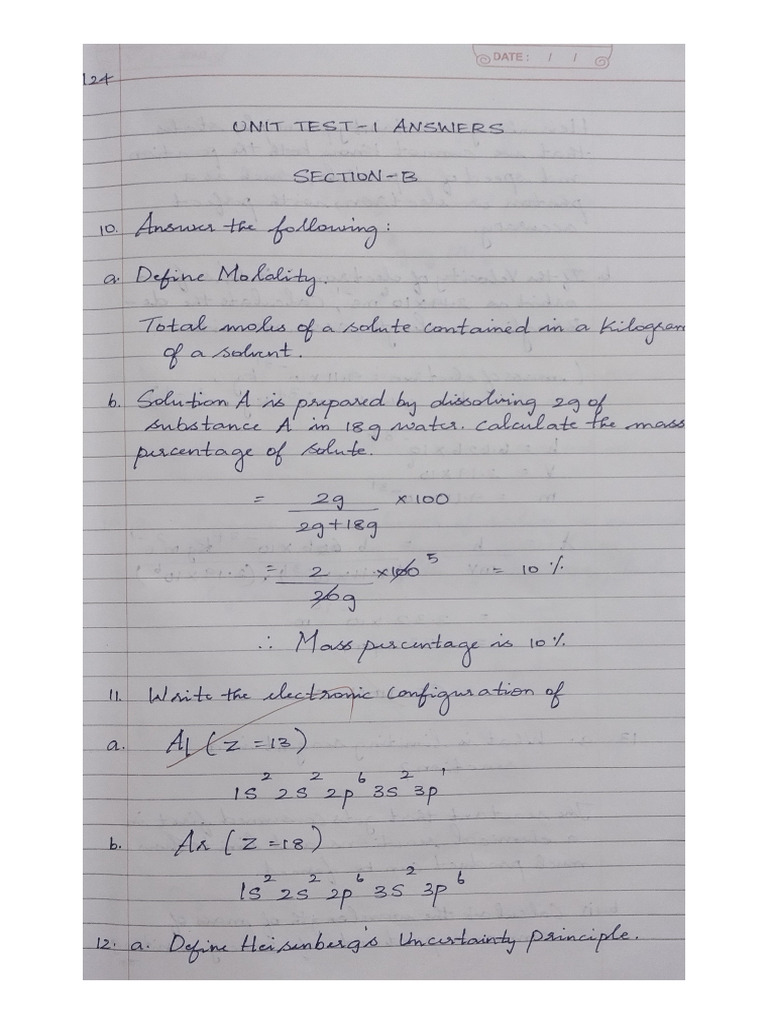 DATE: / /
124
UNIT TEST-1 ANSWERS
SECTION-B
10. Answer the following:
a. Define Molality.
Total moles of a solute contained in a Kilogram
of a solvent.
b. Solution A is prepared by dissolving 2g of
substance A in 18g water. Calculate the mass
percentage of solute.
= 2g × 100
2g+18g
= 2 ×100 5 = 10%
20g
∴ Mass percentage is 10%
11. Write the electronic configuration of
a. Al (Z=13)
1s² 2s² 2p⁶ 3s² 3p¹
b. Ar (Z=18)
1s² 2s² 2p⁶ 3s² 3p⁶
12. a. Define Heisenberg's Uncertainty principle.